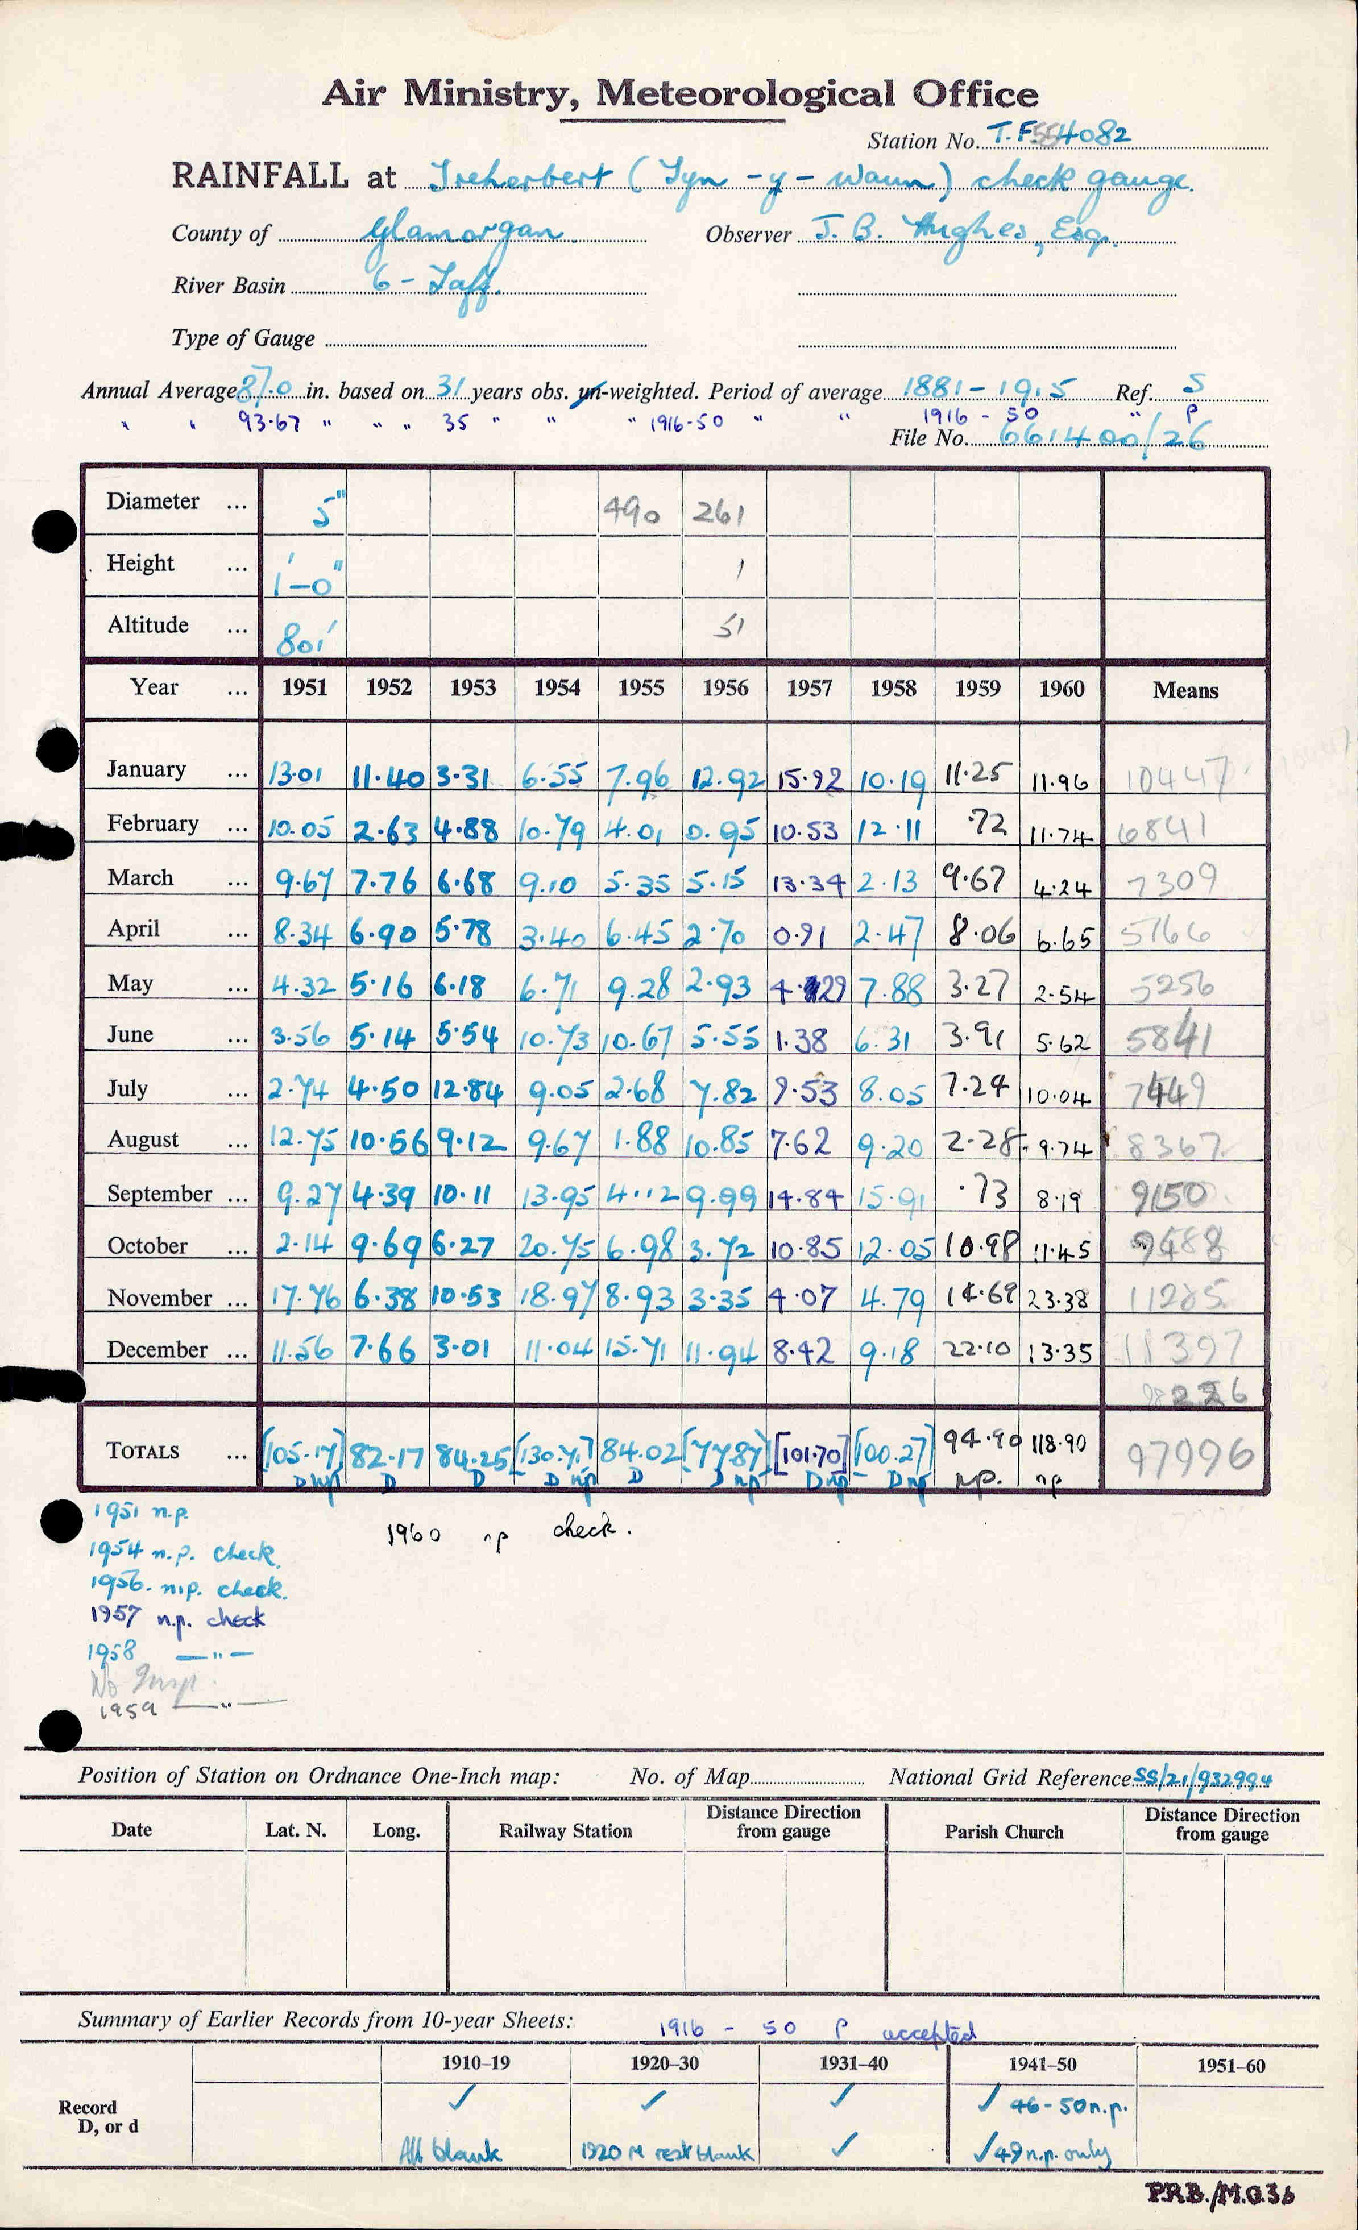 Air Ministry, Meteorological Office
Station No. T.F. 554082
RAINFALL at Treherbert (Tyn-y-waun) check gauge.
County of Glamorgan. Observer J. B. Hughes, Esq.
River Basin 6 - Taff.
Type of Gauge
Annual Average 87.0 in. based on 31 years obs. un-weighted. Period of average 1881-1915 Ref. S
" " 93.67 " " " 35 " " " 1916-50 " " 1916-50 " P
File No. 661400/26
Diameter ... 5" 490 261
Height ... 1'-0" 1
Altitude ... 801' 51
Year ... 1951 1952 1953 1954 1955 1956 1957 1958 1959 1960 Means
January ... 13.01 11.40 3.31 6.55 7.96 12.92 15.92 10.19 11.25 11.96 10447
February ... 10.05 2.63 4.88 10.79 4.01 0.95 10.53 12.11 .72 11.74 6841
March ... 9.67 7.76 6.68 9.10 5.35 5.15 13.34 2.13 9.67 4.24 7309
April ... 8.34 6.90 5.78 3.40 6.45 2.70 0.91 2.47 8.06 6.65 5166
May ... 4.32 5.16 6.18 6.71 9.28 2.93 4.29 7.88 3.27 2.54 5256
June ... 3.56 5.14 5.54 10.73 10.67 5.55 1.38 6.31 3.91 5.62 5841
July ... 2.74 4.50 12.84 9.05 2.68 7.82 9.53 8.05 7.24 10.04 7449
August ... 12.75 10.56 9.12 9.67 1.88 10.85 7.62 9.20 2.28 9.74 8367
September ... 9.27 4.39 10.11 13.95 4.12 9.99 14.84 15.91 .73 8.19 9150
October ... 2.14 9.69 6.27 20.75 6.98 3.72 10.85 12.05 10.98 11.45 9488
November ... 17.76 6.38 10.53 18.97 8.93 3.35 4.07 4.79 14.69 23.38 11285
December ... 11.56 7.66 3.01 11.04 15.71 11.94 8.42 9.18 22.10 13.35 11397
TOTALS ... [105.17] 82.17 84.25 [130.71] 84.02 [77.87] [101.70] [100.27] 94.90 118.90 97996
D np D D D np D D np D np D np np. np
1951 n.p.
1960 np check.
1954 n.p. check.
1956. n.p. check.
1957 n.p. check
1958 —"—
No Insp.
1959 —"—
Position of Station on Ordnance One-Inch map: No. of Map National Grid Reference SS/21/932994
Date Lat. N. Long. Railway Station Distance Direction from gauge Parish Church Distance Direction from gauge
Summary of Earlier Records from 10-year Sheets: 1916 - 50 P accepted
1910–19 1920–30 1931–40 1941–50 1951–60
Record ✓ ✓ ✓ ✓ 46-50 n.p.
D, or d All blank 1920 M rest blank ✓ ✓ 49 n.p. only
P.R.B./M.O.36